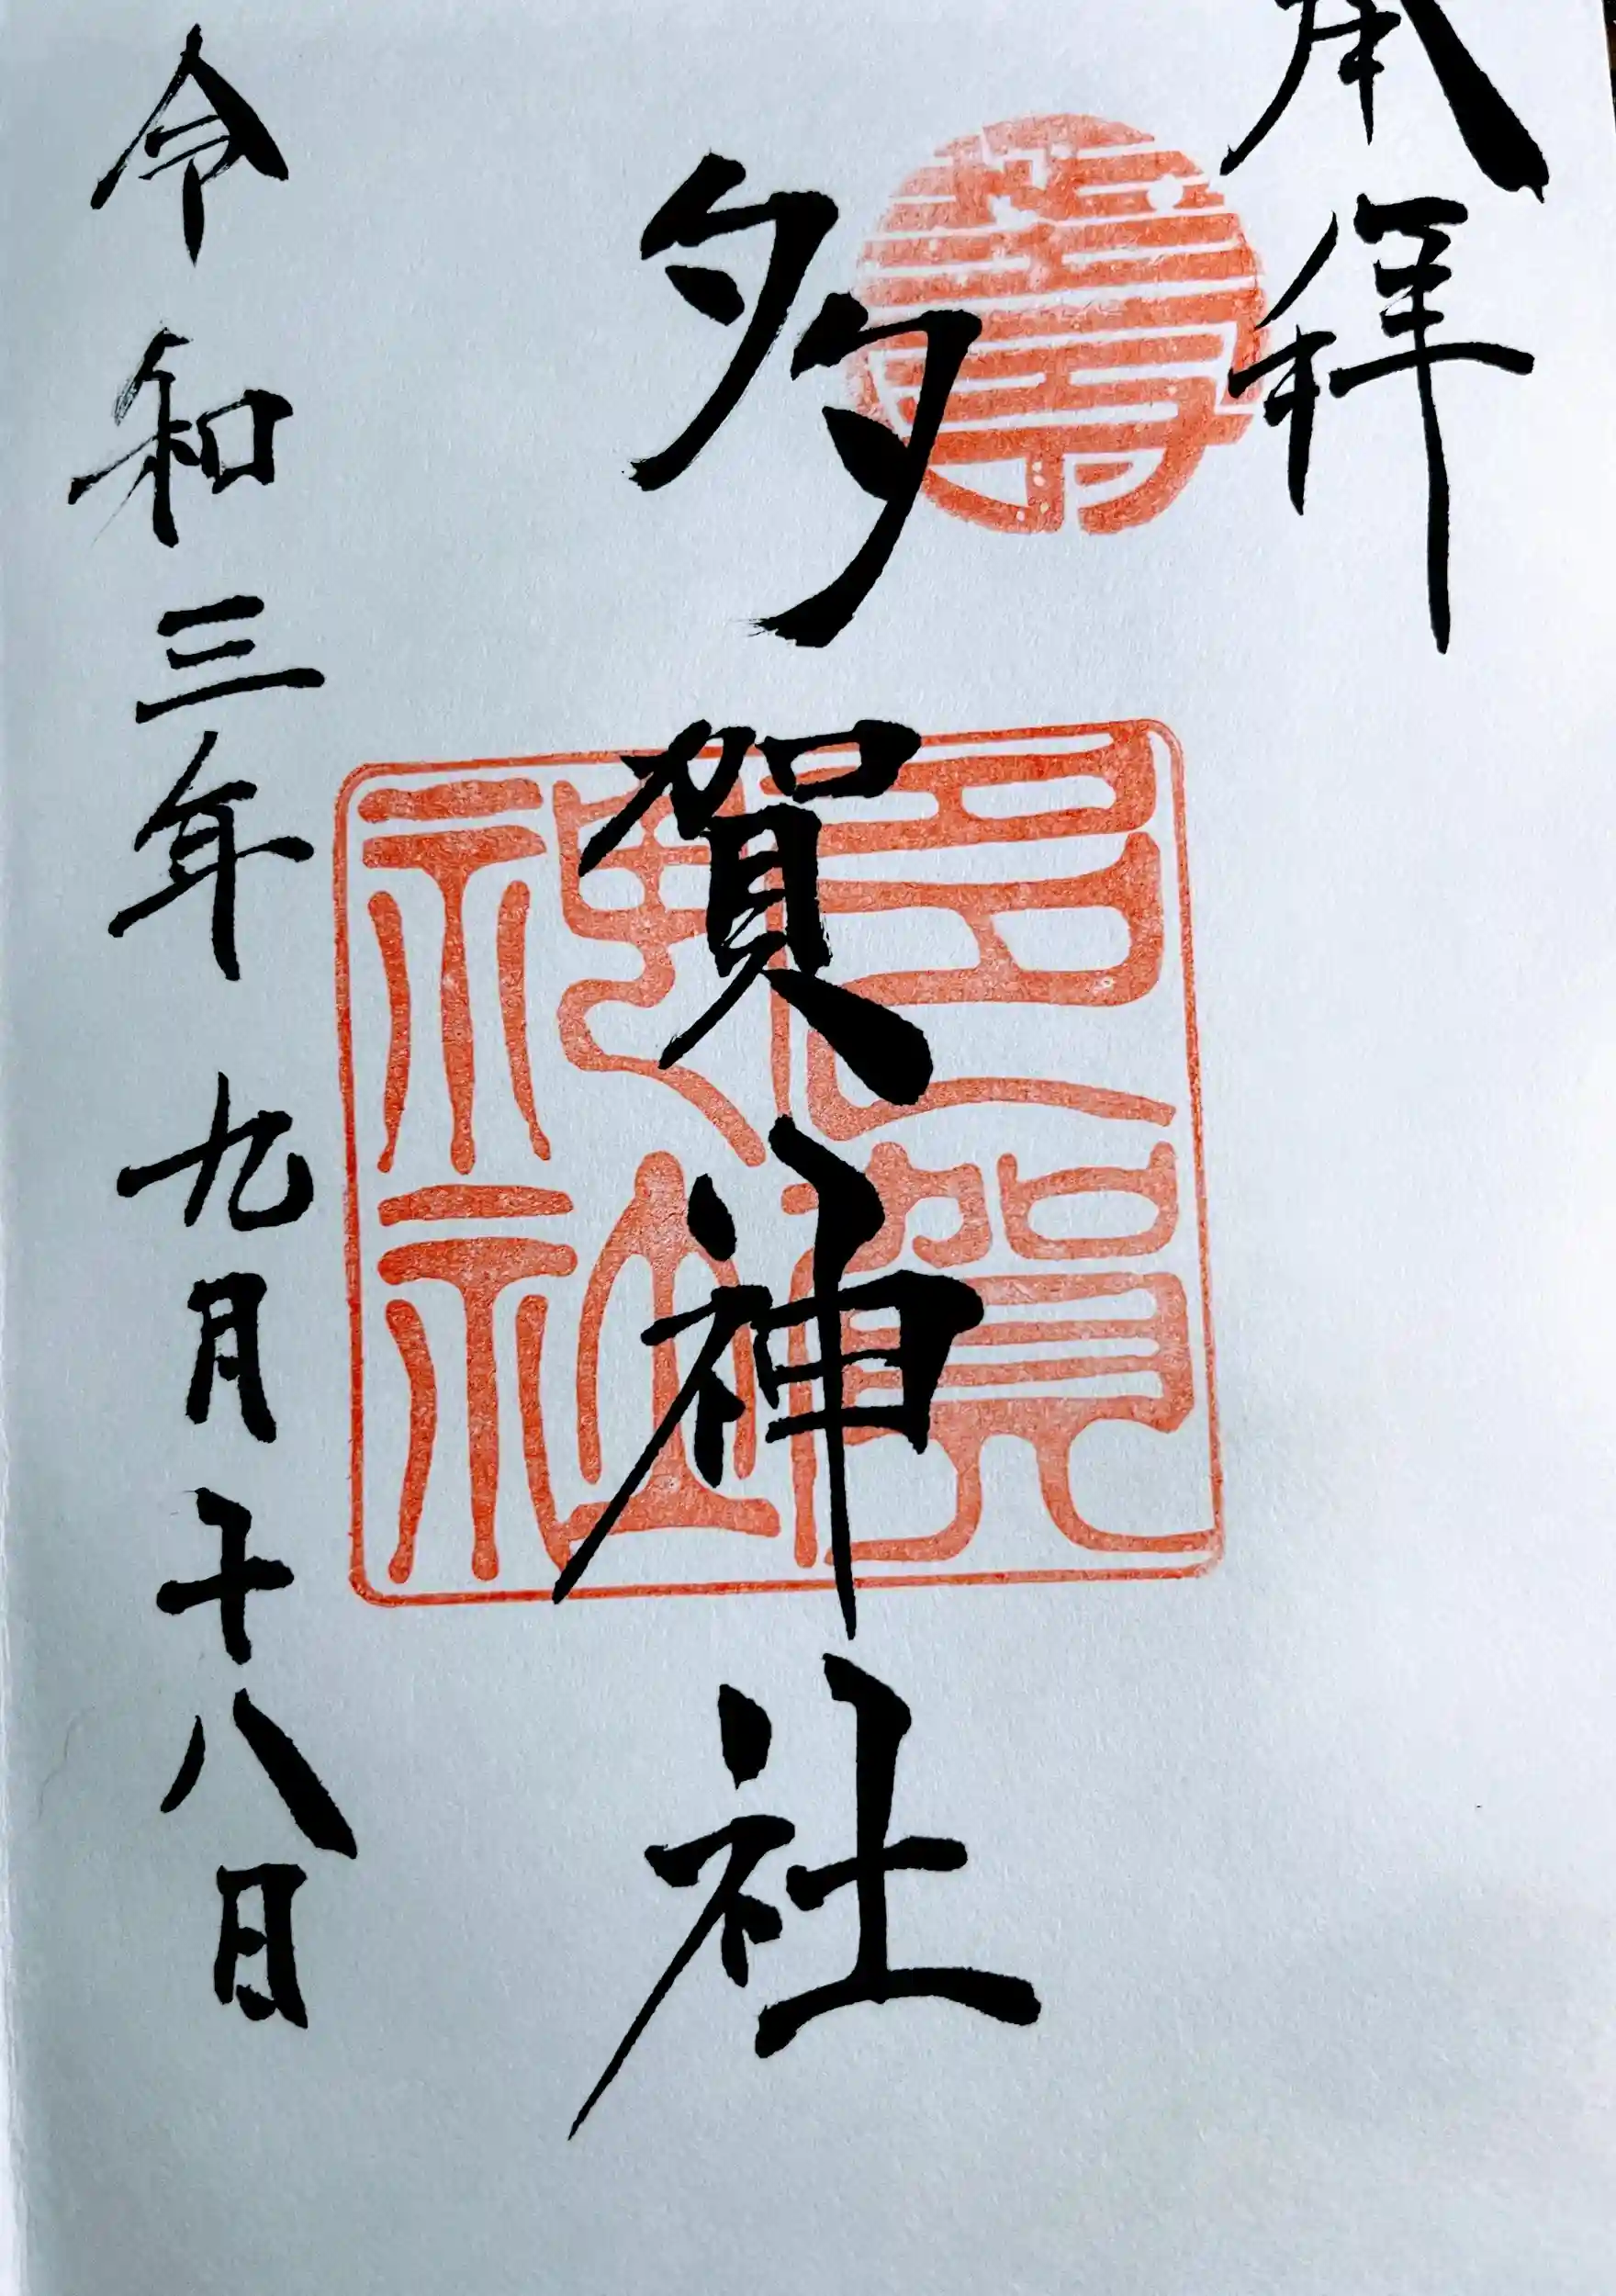 奉拝
多賀神社
多賀神社
令和三年 九月十八日